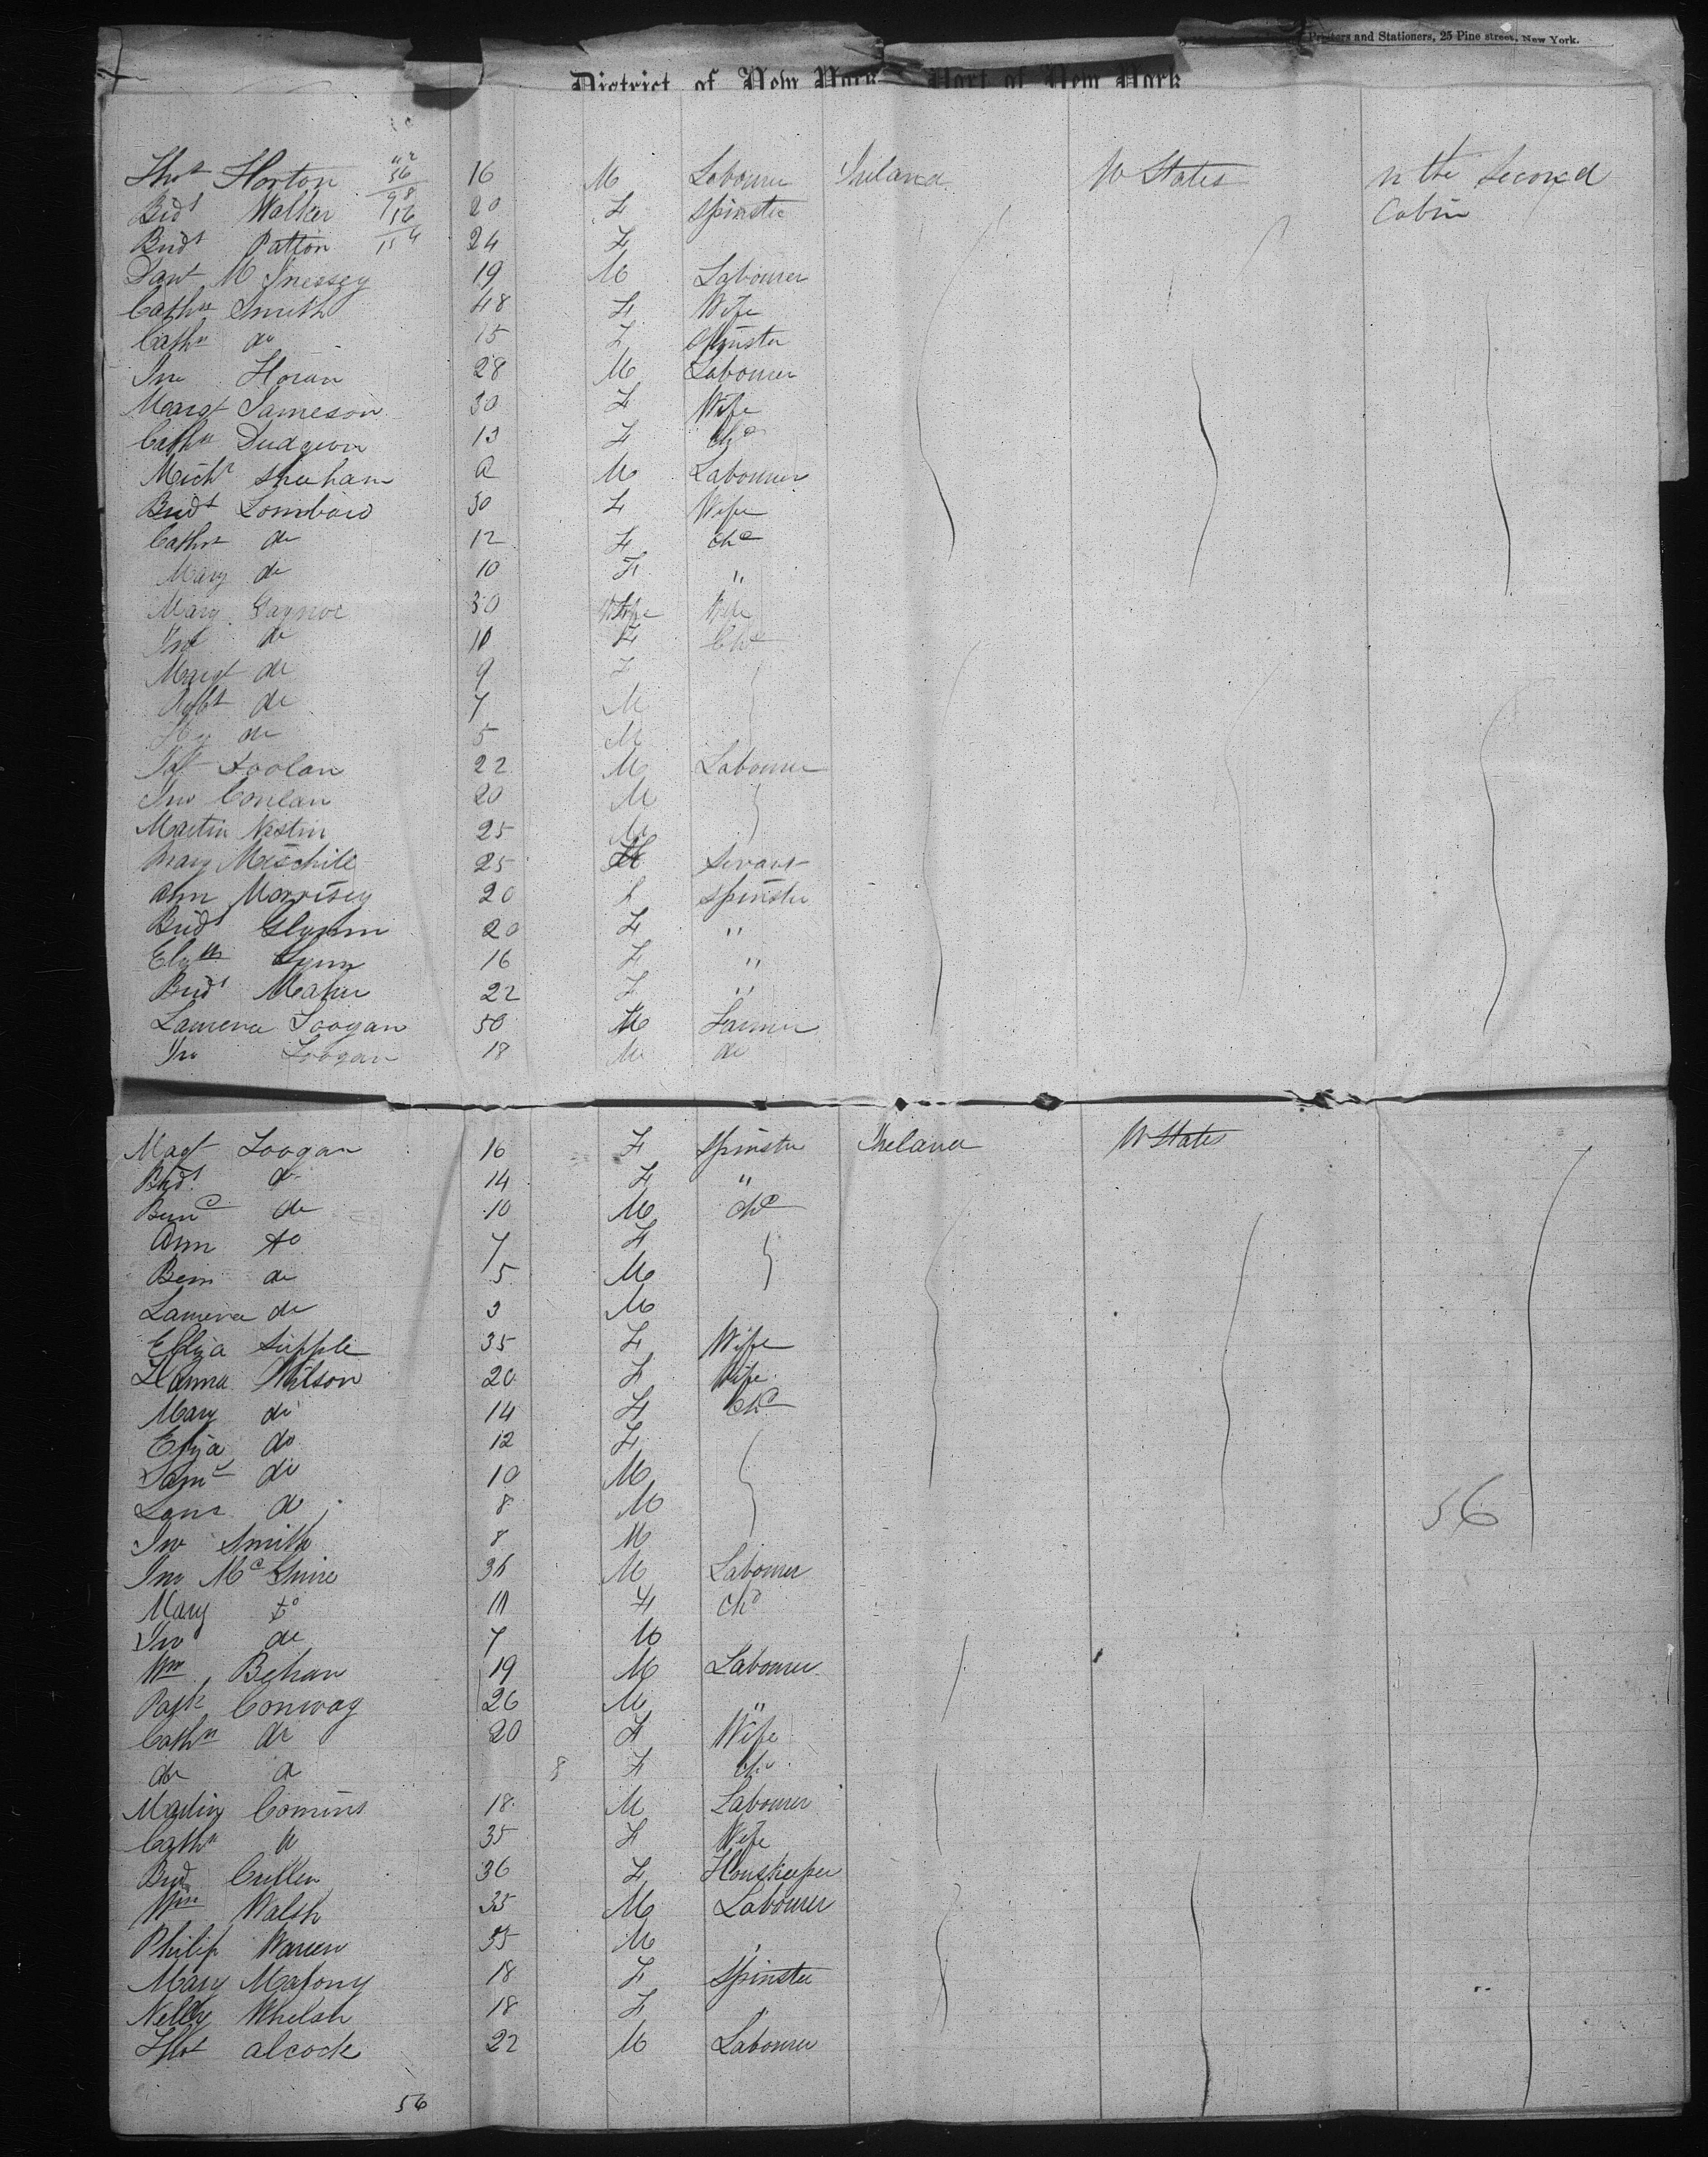 Printers and Stationers, 25 Pine street, New York.
District of New York Port of New York
42
56
98
56
154
Thos Horton 16 M Labourer Ireland U States in the Second
Bidt Walker 20 F Spinster Cabin
Bridt Patton 24 F
19 M Labourer
Cathn Smith 48 F Wife
Cathn do 15 F Spinster
Jno Horan 28 M Labourer
Margt Jameson 30 F Wife
Cathn Dudgeon 13 F Chd
Michl Sheehan M Labourer
Bridt Lombard 30 F Wife
Cathn do 12 F Chd
Mary do 10 F "
Mary Gaynor 30 Wife Wife
do 10 F Chd
Margt do 9 F
Robt do 7 M
Hy do 5 M
Toolan 22 M Labourer
Jno Conlan 20 M
Martin Nestin 25 M
Mary 25 Servant
Ann Morrisey 20 F Spinster
Bridt Glynn 20 F "
Elizth Lynn 16 F "
Bridt Maher 22 F "
Lawrence Loogan 50 M Farmer
Jno Loogan 18 M do
Magt Loogan 16 F Spinster Ireland U States
Bridt do 14 F "
do 10 M Chd
Ann do 7 F
do 5 M
Lawrence do 3 M
Eliza Supple 35 F Wife
Hanna Wilson 20 F Wife
Mary do 14 F Chd
Eliza do 12 F
Saml do 10 M
do 8 M 56
Jno Smith 8 M
Jno McGuire 36 M Labourer
Mary do F Chd
Jno do 7 M
Wm Behan 19 M Labourer
Patk Conway 26 M "
Cathn do 20 F Wife
do do 8 F Chd
Martin Comins 18 M Labourer
Cathn do 35 F Wife
Brid Cullen 36 F Houskeeper
Wm Walsh 35 M Labourer
Philip Warren 35 M "
Mary Mahony 18 F Spinster
Nelly Whelan 18 F "
Thos Alcock 22 M Labourer
56